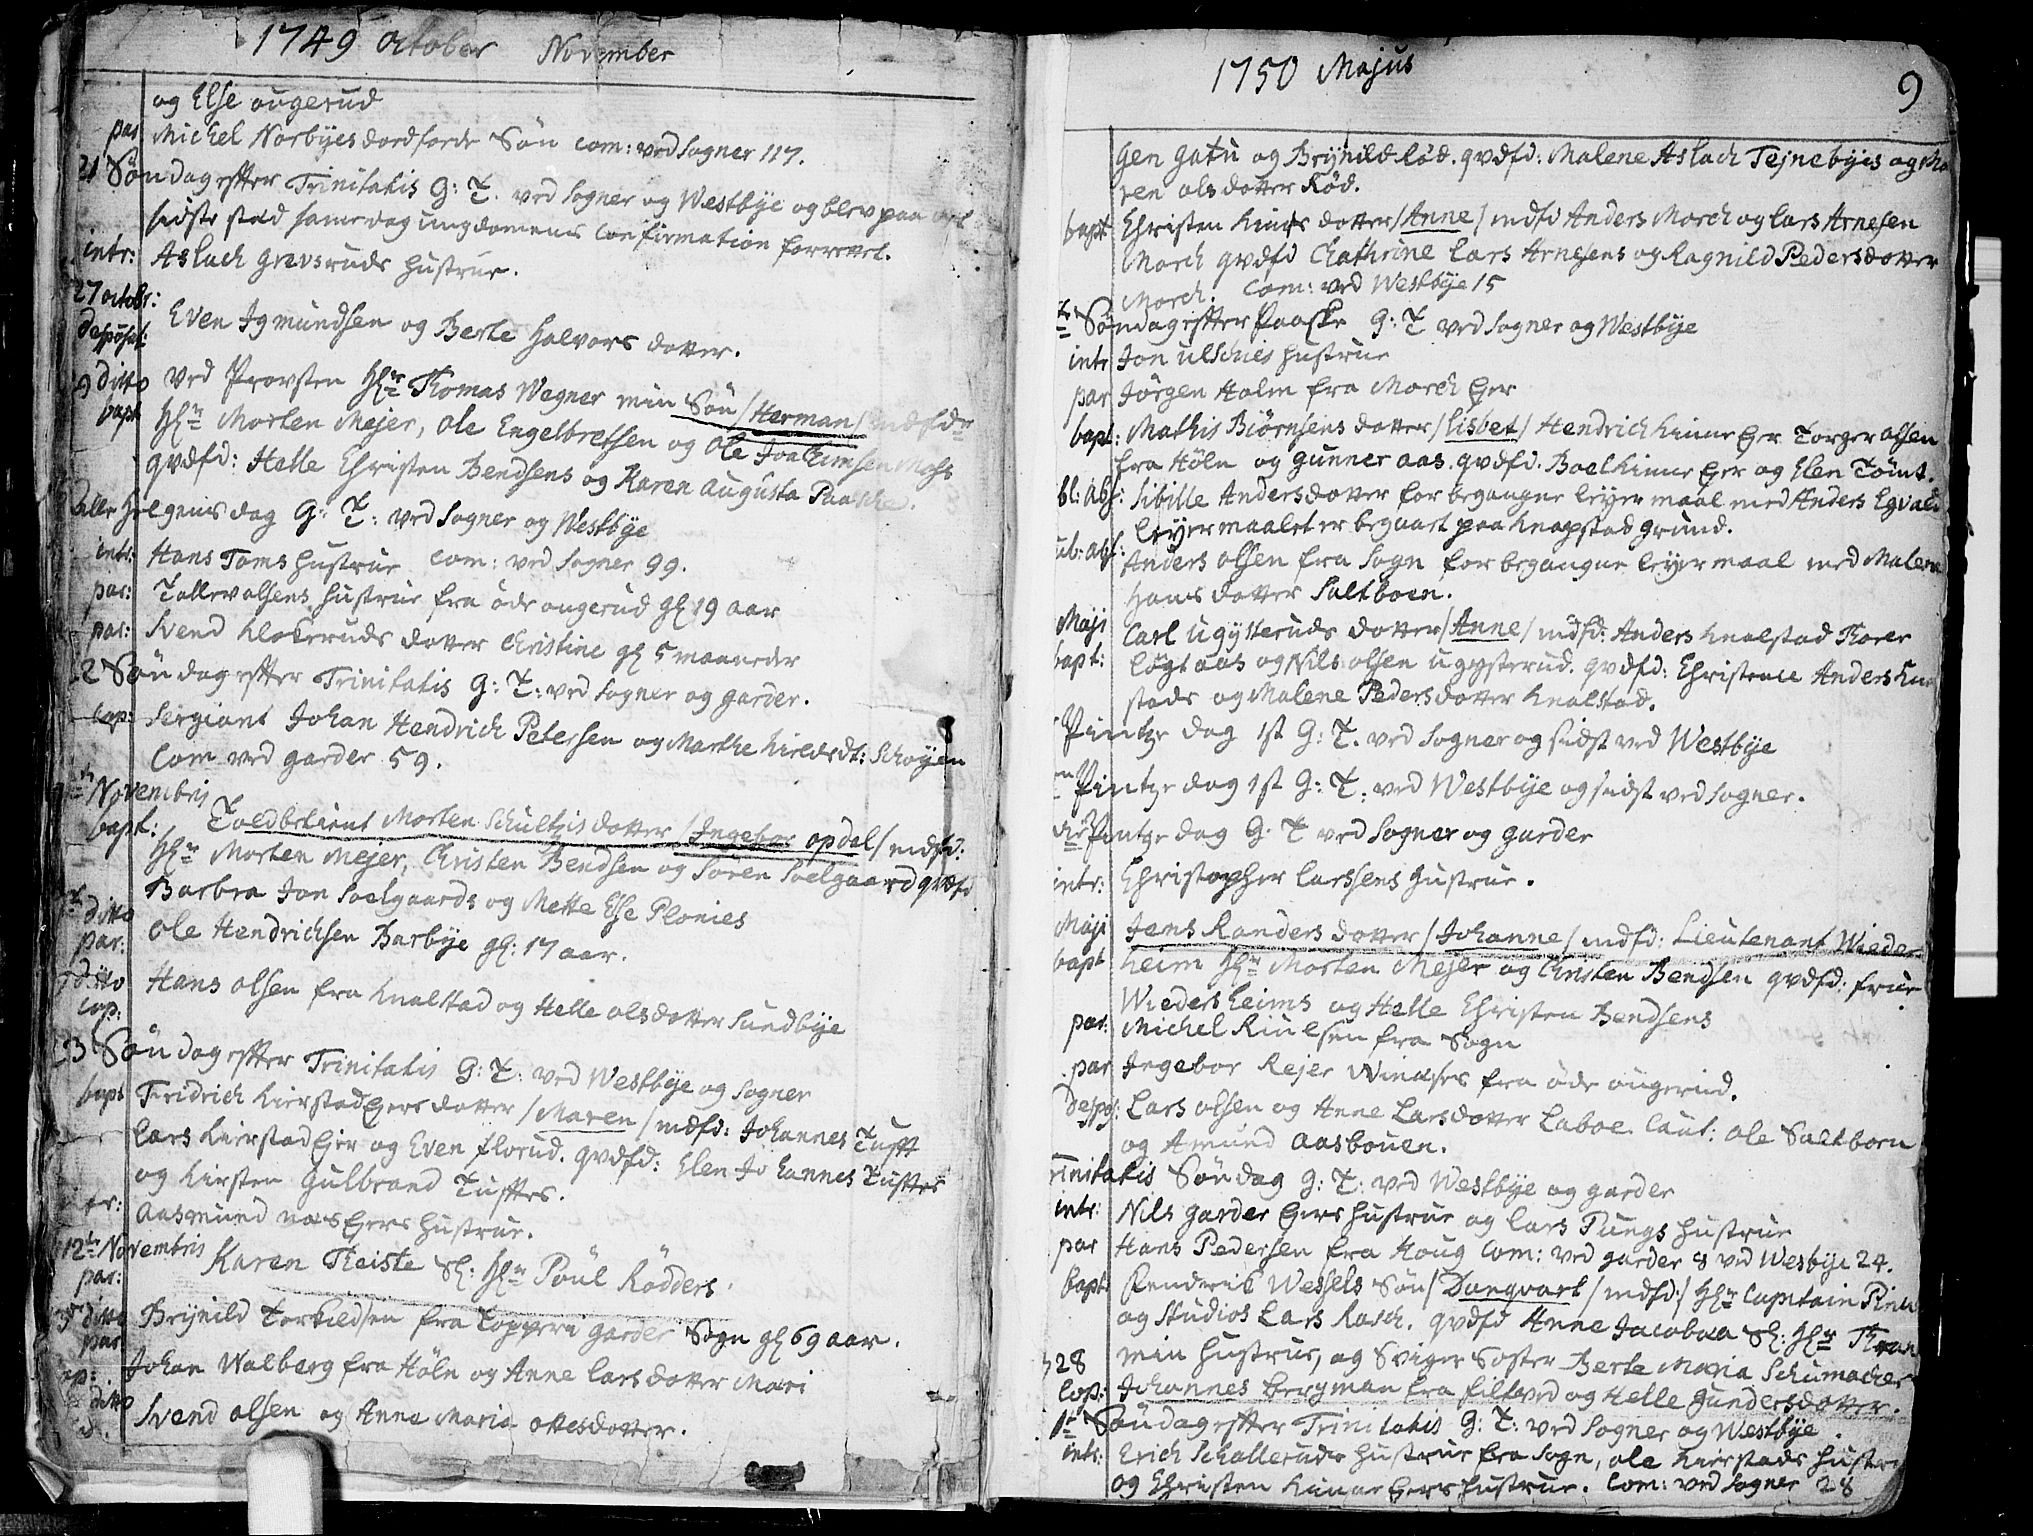 1749 October November
og Else ougerud
par Michel Norbyes dødfødde Søn com: ved Sogner 117.
21 Søndag effter Trinitatis G: T. ved Sogner og Westbye og blev paa
sidste stæd samme dag ungdomens Confirmation forrettet.
intr: Aslach Grevsruds Hustrue.
27 octobr:
desponsat: Even Igmundsen og Berte Halvors dotter.
29 ditto ved Provsten Hr Thomas Wegner min Søn / Herman / mdfdr
bapt Hrn Morten Mejer, Ole Engelbretsen og Ole Joachimsen Mohs
qvdfd: Helle Christen Bendsens og Karen Augusta Paasche.
Alle Helgens dag G: T: ved Sogner og Westbye
intr: Hans Toms Hustrue com: ved Sogner 99.
par: Tollev olsens Hustrue fra øde ougerud gl 19 aar
par: Svend Klokeruds dotter Christine gl 5 maaneder
22 Søndag effter Trinitatis G: T: ved Sogner og garder.
Cop: Sergiant Johan Hendrich Petersen og Marthe Kieldsdt: Schoyen
Com ved garder 59.
Novembris
bapt: Toldbetient Morten Schultzis dotter / Ingebor opdal / mdfd:
Hrn Morten Mejer, Christen Bendsen og Soren Soelgaard qvdfd
Barbra Jon Soelgaards og Mette Else Plonies
ditto
par: Ole Hendrichsen Barbye gl: 17 aar.
ditto Hans olsen fra Knalstad og Helle olsdotter Sundbye
cop:
23 Søndag effter Trinitatis G: T: ved Westbye og Sogner
bapt Fridrich Kierstad Ejers dotter / Maren / mdfd: Johannes Tufft
Lars Kierstad Ejer og Even florud. qvdfd: Elen Johannes Tufftes
og Kirsten Gulbrand Tufftes.
Aasmund næs Ejers Hustrue.
12te Novembris Karen Theiste Sl: Hrn Poul Rødders.
par:
ditto Brynild Torkildsen fra Toppern garder Sogn gl 69 aar.
par
cop: Johan Walberg fra Høln og Anne Lars dotter Mari
ditto Svend olsen og Anne Maria ottesdotter.
1750 Majus
9
gen gatu og Brynild Rød. qvdfd: Malene Aslach Tejnebyes og Ma
ren olsdotter Rød.
bapt Christen Kinds dotter / Anne / mdfd Anders Morch og Lars Arnesen
Morch qvdfd Chathrine Lars Arnesens og Ragnild Pedersdotter
Morch. Com: ved Westbye 15
Søndag effter Paaske G: T ved Sogner og Westbye
intr Jon ulschies Hustrue
par Jørgen Holm fra Morch Ejer
bapt: Mathis Biørnsens dotter / Lisbet / Hendrich Kinne Ejer Torger olsen
fra Høln og Gunner aas. qvdfd. Boel Kinne Ejer og Elen Tømt.
bl: abs: Sibille Andersdotter for begangne leyermaal med Anders Egvald
leyermaalet er begaaet paa Knapstad grund.
ub: abs: Anders olsen fra Sogn for begangne leyermaal med Malene
Hans dotter Saltboen.
Maji Carl Ugytteruds dotter / Anne / mdfd: Anders Knalstad Thorer
bapt: Løgtaas og Nils olsen ugysterud. qvdfd: Christence Anders Kna
stads og Malene Pedersdotter Knalstad.
Pintze dag 1st G: T. ved Sogner og sidst ved Westbye
Pintze dag 1st G: T: ved Westbye og sidst ved Sogner.
die Pintze dag G: T ved Sogner og garder
intr: Christopher Larssens Hustrue.
Maji Jens Randers dotter / Johanne / mdfd: Lieutenant Wieders
bapt heim Hrn Morten Mejer og Christen Bendsen qvdfd: frue
Wiedersheims og Helle Christen Bendsens
par: Michel Riulsen fra Sogn
par Ingebor Rejer Windsers fra øde ougerud.
Despos: Lars olsen og Anne Larsdotter Laboe. Caut: Ole Saltboen
og Amund aasbouen.
Trinitatis Søndag G: T: ved Westbye og garder
intr: Nils garder Ejers Hustrue og Lars Pungs Hustrue
par Hans Pedersen fra Houg Com: ved garder 8 ved Westbye 24.
bapt: Renderik Wessels Søn / Danqvart / mdfd: / Hrn Captain Pinn
og Studios Lars Rasch. qvdfd Anne Jacobæa Sl: Hrn
min Hustrue, og Sviger Søster Berte Maria Schumacher
28
Cop: Johannes Bergman fra filtved og Helle Gundersdotter.
1te Søndag effter Trinitatis G: T: ved Sogner og Westbye.
intr: Erich Schalleruds Hustrue fra Sogn, ole Kierstads Hustru
og Christen Kinne Ejers Hustrue. Com: ved Sogner 28